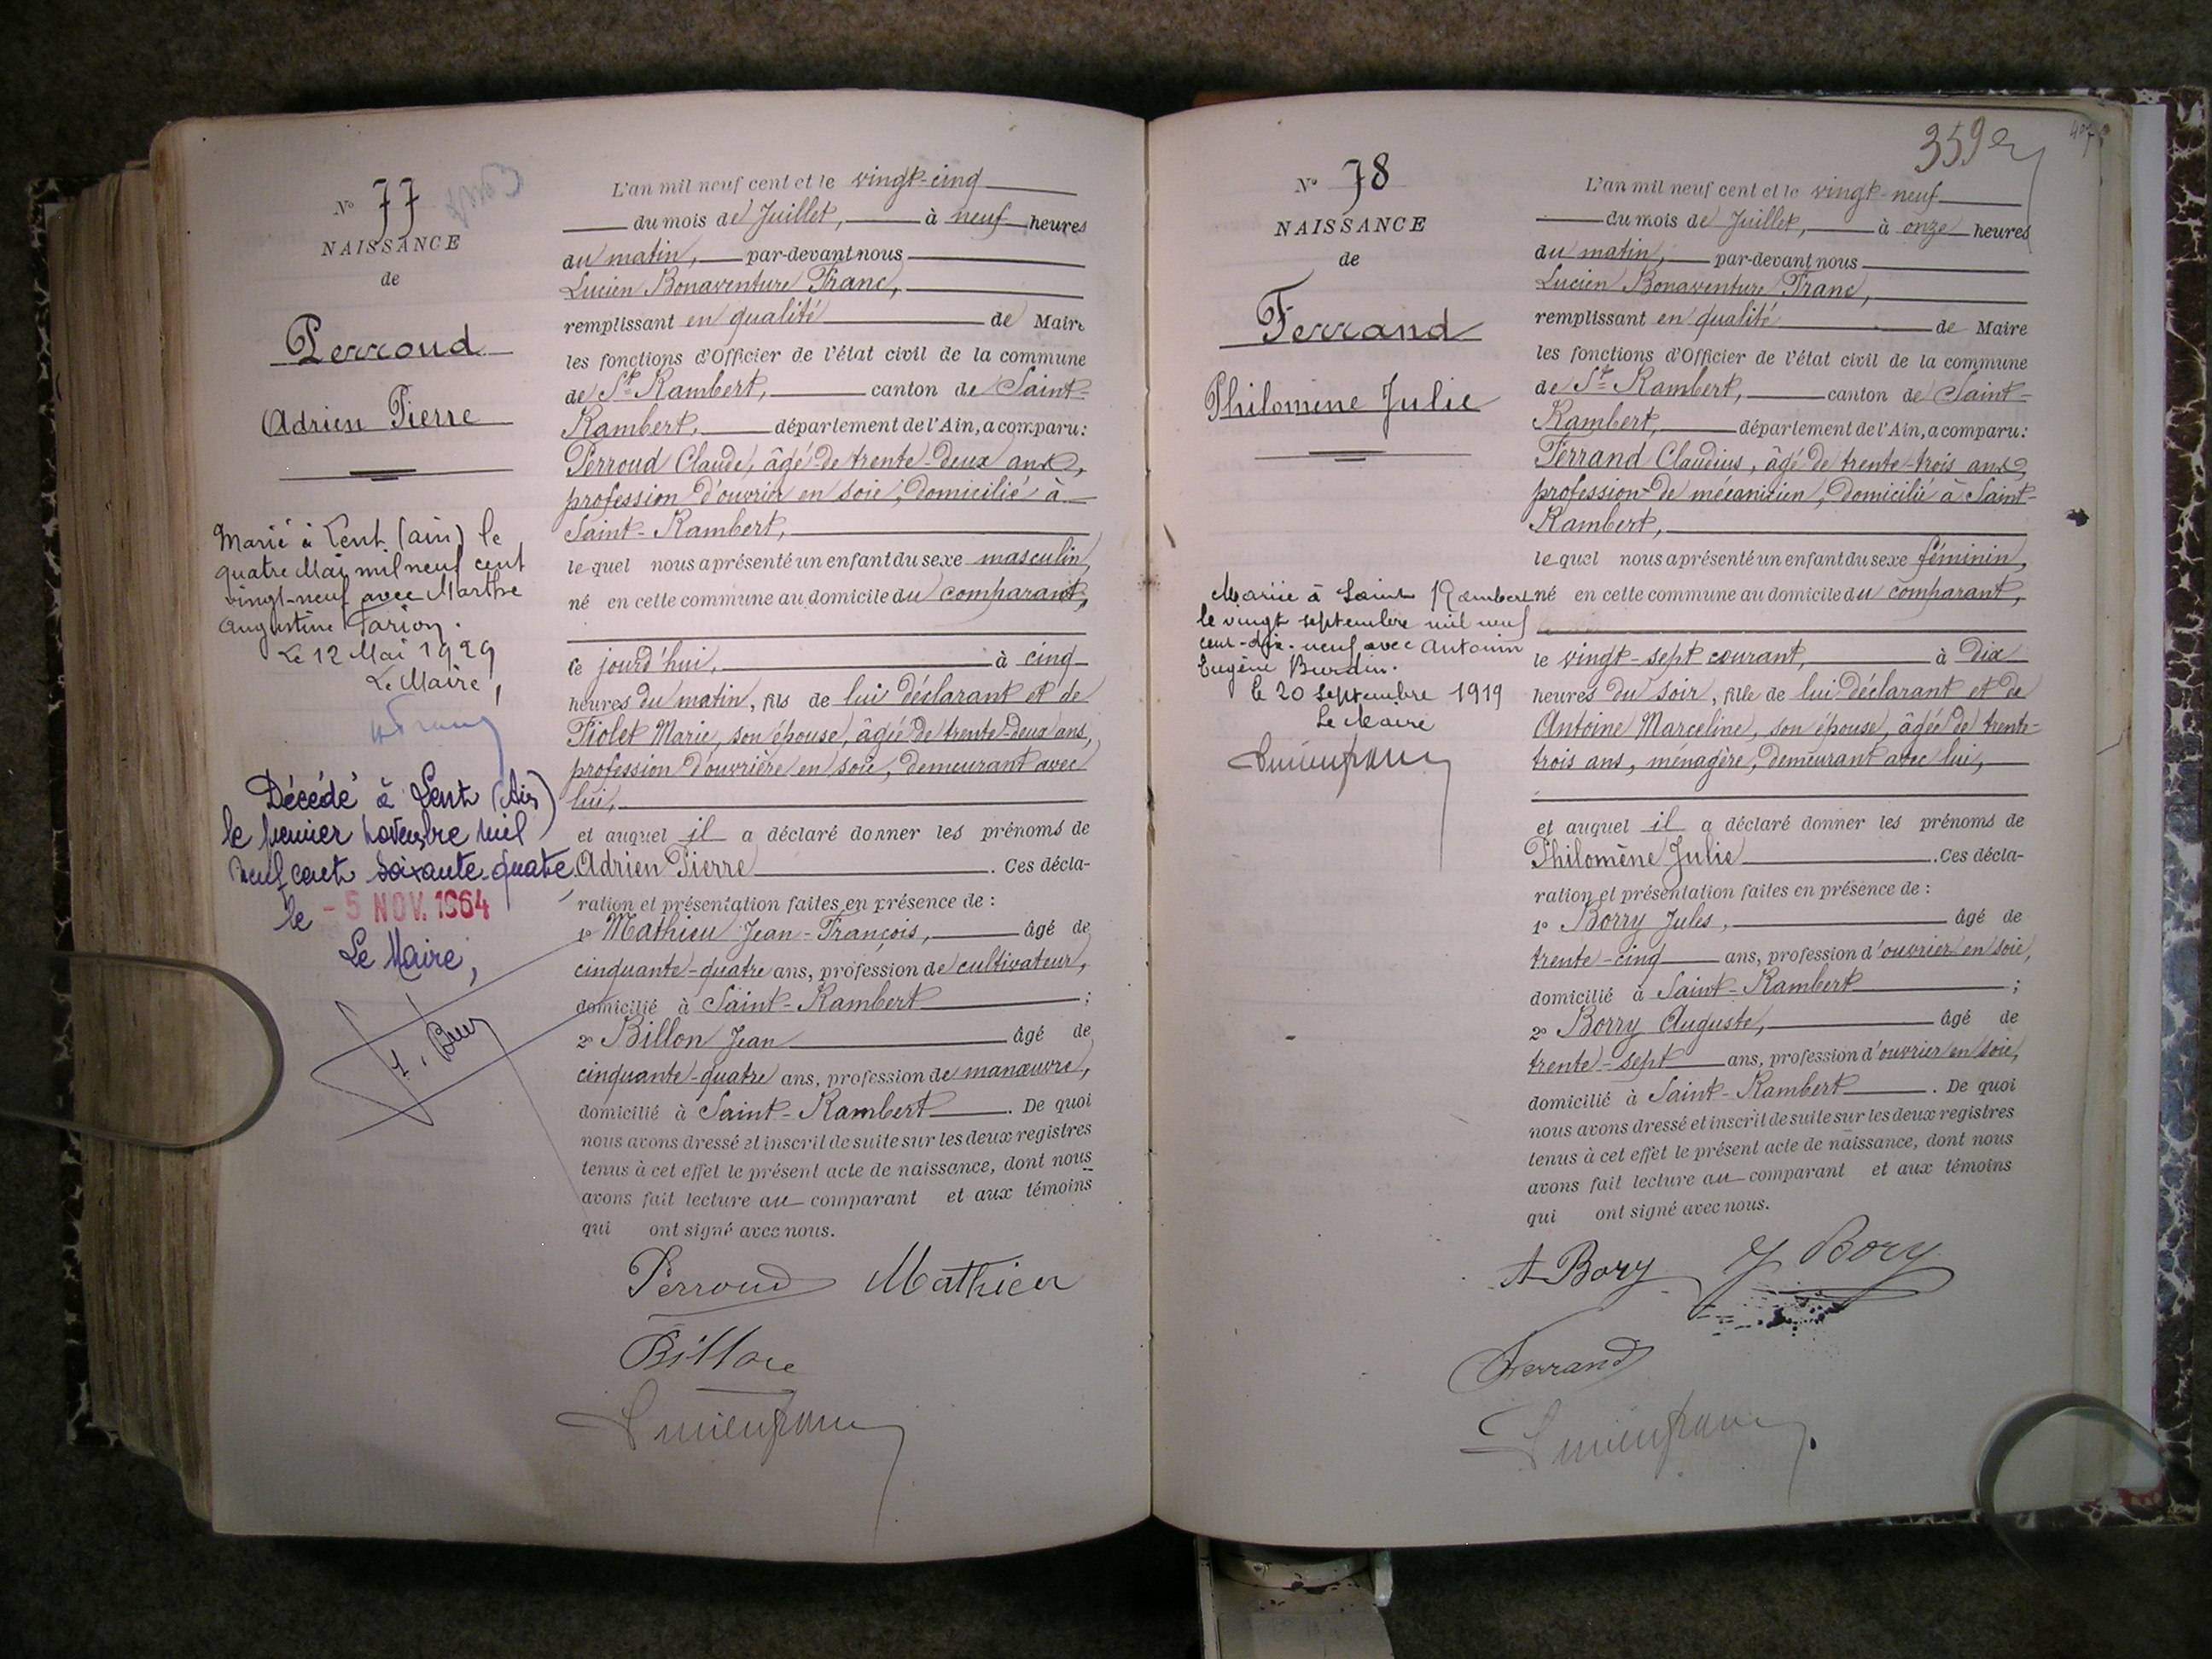 N° 77
NAISSANCE
de
Perroud
Adrien Pierre
Marié à Lent (ain) le
quatre Mai mil neuf cent
vingt-neuf avec Marthe
Augustine Parion.
Le 12 Mai 1929
Le Maire,
Décédé à Lent (Ain)
le premier novembre mil
neuf cent soixante-quatre
le - 5 NOV. 1964
Le Maire,
L'an mil neuf cent et le vingt-cinq
du mois de Juillet, à neuf heures
du matin, par-devant nous
Lucien Bonaventure Franc,
remplissant en qualité de Maire
les fonctions d'Officier de l'état civil de la commune
de St Rambert, canton de Saint-
Rambert, département de l'Ain, a comparu:
Perroud Claude, âgé de trente-deux ans,
profession d'ouvrier en soie, domicilié à
Saint-Rambert,
le quel nous a présenté un enfant du sexe masculin,
né en cette commune au domicile du comparant,
ce jourd'hui, à cinq
heures du matin, fils de lui déclarant et de
Fiolet Marie, son épouse, âgée de trente-deux ans,
profession d'ouvrière en soie, demeurant avec
lui,
et auquel il a déclaré donner les prénoms de
Adrien Pierre. Ces décla-
ration et présentation faites en présence de :
1° Mathieu Jean-François, âgé de
cinquante-quatre ans, profession de cultivateur,
domicilié à Saint-Rambert ;
2° Billon Jean âgé de
cinquante-quatre ans, profession de manœuvre,
domicilié à Saint-Rambert. De quoi
nous avons dressé et inscrit de suite sur les deux registres
tenus à cet effet le présent acte de naissance, dont nous
avons fait lecture au comparant et aux témoins
qui ont signé avec nous.
Perroud Mathieu
Billon
Lucien Franc
359
407
N° 78
NAISSANCE
de
Ferrand
Philomène Julie
Mariée à Saint Rambert
le vingt septembre mil neuf
cent-dix-neuf avec Antonin
Eugène Burdin.
le 20 septembre 1919
Le Maire
Lucien Franc
L'an mil neuf cent et le vingt-neuf
du mois de Juillet, à onze heures
du matin, par-devant nous
Lucien Bonaventure Franc,
remplissant en qualité de Maire
les fonctions d'Officier de l'état civil de la commune
de St Rambert, canton de Saint-
Rambert, département de l'Ain, a comparu:
Ferrand Claudius, âgé de trente-trois ans,
profession de mécanicien, domicilié à Saint-
Rambert,
le quel nous a présenté un enfant du sexe féminin,
né en cette commune au domicile du comparant,
le vingt-sept courant, à dix
heures du soir, fille de lui déclarant et de
Antoine Marceline, son épouse, âgée de trente-
trois ans, ménagère, demeurant avec lui,
et auquel il a déclaré donner les prénoms de
Philomène Julie. Ces décla-
ration et présentation faites en présence de :
1° Borry Jules, âgé de
trente-cinq ans, profession d'ouvrier en soie,
domicilié à Saint-Rambert ;
2° Borry Auguste, âgé de
trente-sept ans, profession d'ouvrier en soie,
domicilié à Saint-Rambert. De quoi
nous avons dressé et inscrit de suite sur les deux registres
tenus à cet effet le présent acte de naissance, dont nous
avons fait lecture au comparant et aux témoins
qui ont signé avec nous.
A Bory J Bory
Ferrand
Lucien Franc